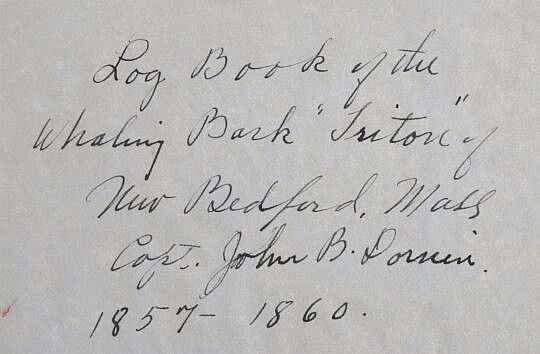 Log Book of the
Whaling Bark "Triton" of
New Bedford, Mass
Capt. John B. Dornin.
1857- 1860.